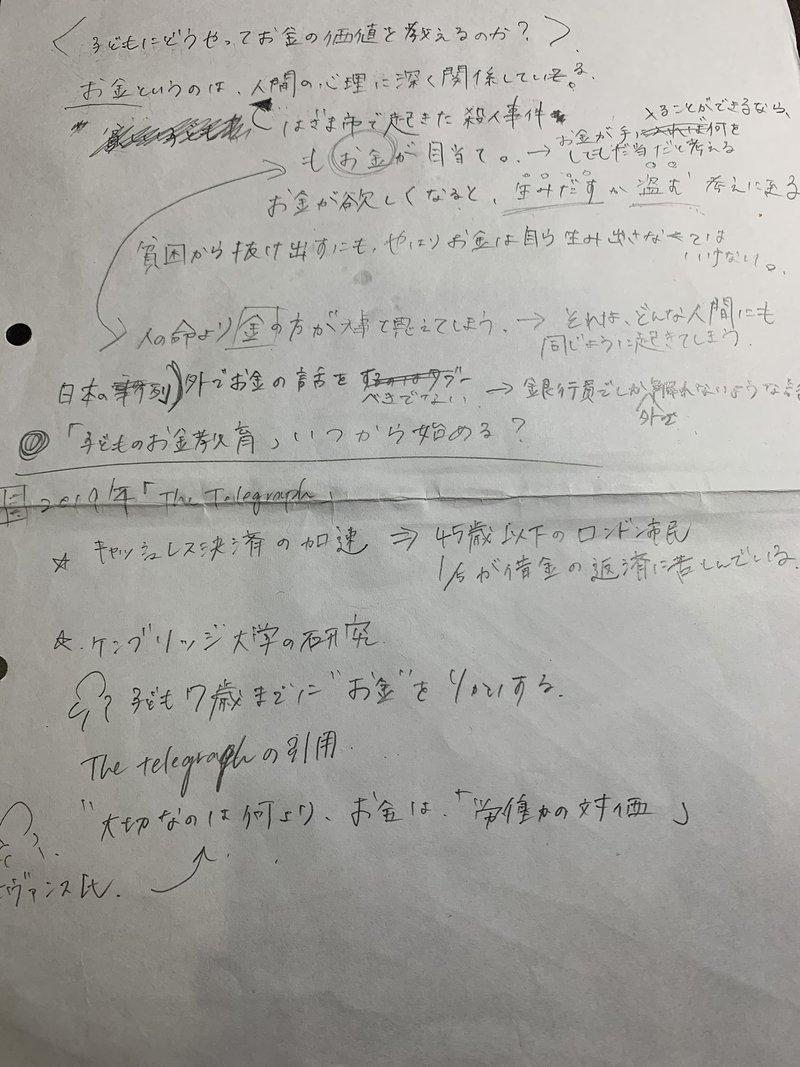 〈子どもにどうやってお金の価値を教えるのか?〉
お金というのは、人間の心理に深く関係している。
はざま市で起きた殺人事件
もお金が目当て。→お金が手に入ることができるなら、何を
しても
だと考える
お金が欲しくなると、生みだすか盗む考えに至る
貧困から抜け出すにも、やはりお金は自ら生み出さなくては
いけない。
人の命より金の方が大事で思えてしまう。→それは、どんな人間にも
同じように起きてしまう。
日本の
外でお金の話を
するのはタブー
べきでない
→銀行員でしか
解れないような話
外せ
◎「子どものお金教育」いつから始める?
2019年「The Telegraph」
☆キャッシュレス決済の加速⇒45歳以下のロンドン市民
1/5が借金の返済に苦しんでいる。
☆ケンブリッジ大学の研究
子ども7歳までに"お金"を
The telegraphの引用
"大切なのは何より、お金は、「労働力の対価」
ヴァンス氏.